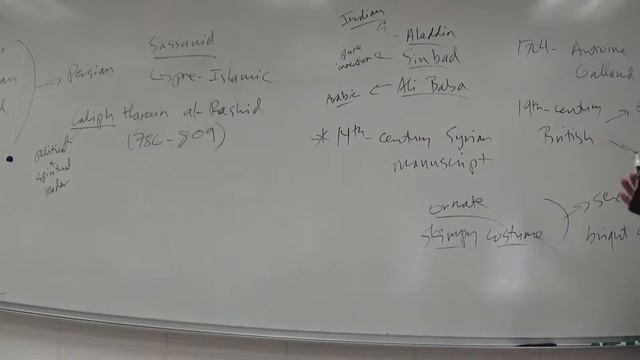 Sassanid
Persian
pre-Islamic
Caliph Haroun al-Rashid
(786-809)
political
spiritual
leader
Indian
Aladdin
pure
invention
Sinbad
Arabic
Ali Baba
* 14th-century Syrian
manuscript
ornate
skimpy costume
1704- Antoine
Galland
19th-century
British